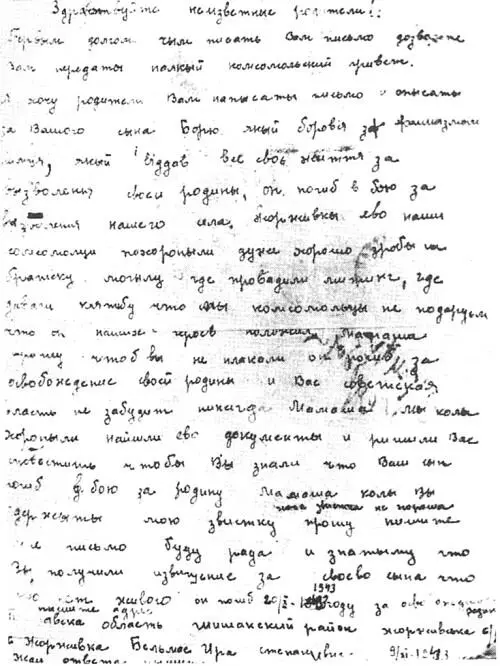 Здравствуйте неизвестные родители!!
Первым долгом чым писать Вам письмо дозвольте
Вам передаты палкый комсомольский привет.
Я хочу родители Вам напысаты письмо и опысаты
за Вашого сына Борю якый боровся за фашизмом
якый віддав все своє життя за
визволенння своей родины, он погиб в бою за
вызволення нашего села. Жорживкы ево наши
комсомолци похоронылы дуже хорошо зробылы
братску могылу где проводили митинг, где
давали клятьбу что мы комсомольцы не подаруем
что он наше кров положил Мамаша
прошу чтоб вы не плакали он погиб за
освобождение своей родины и Вас советская
власть не забудит никогда Мамаша мы колы
хоронылы найшли ево документы и ришили Вас
известить чтобы Вы знали что Ваш сын
погиб в бою за родину Мамаша колы Вы
хоча звистка не хороша
одержыты мою звистку прошу пишите
мне письмо буду рада и знатыму что
Вы получили извищение за своево сына что
нет живого он погиб 20/Х-1943 году за
пишите адрес
область шишакский район жорживка с/р
с Жоржівка Бельмас Ира степановна. 9/ХІ-1943
Жди ответа